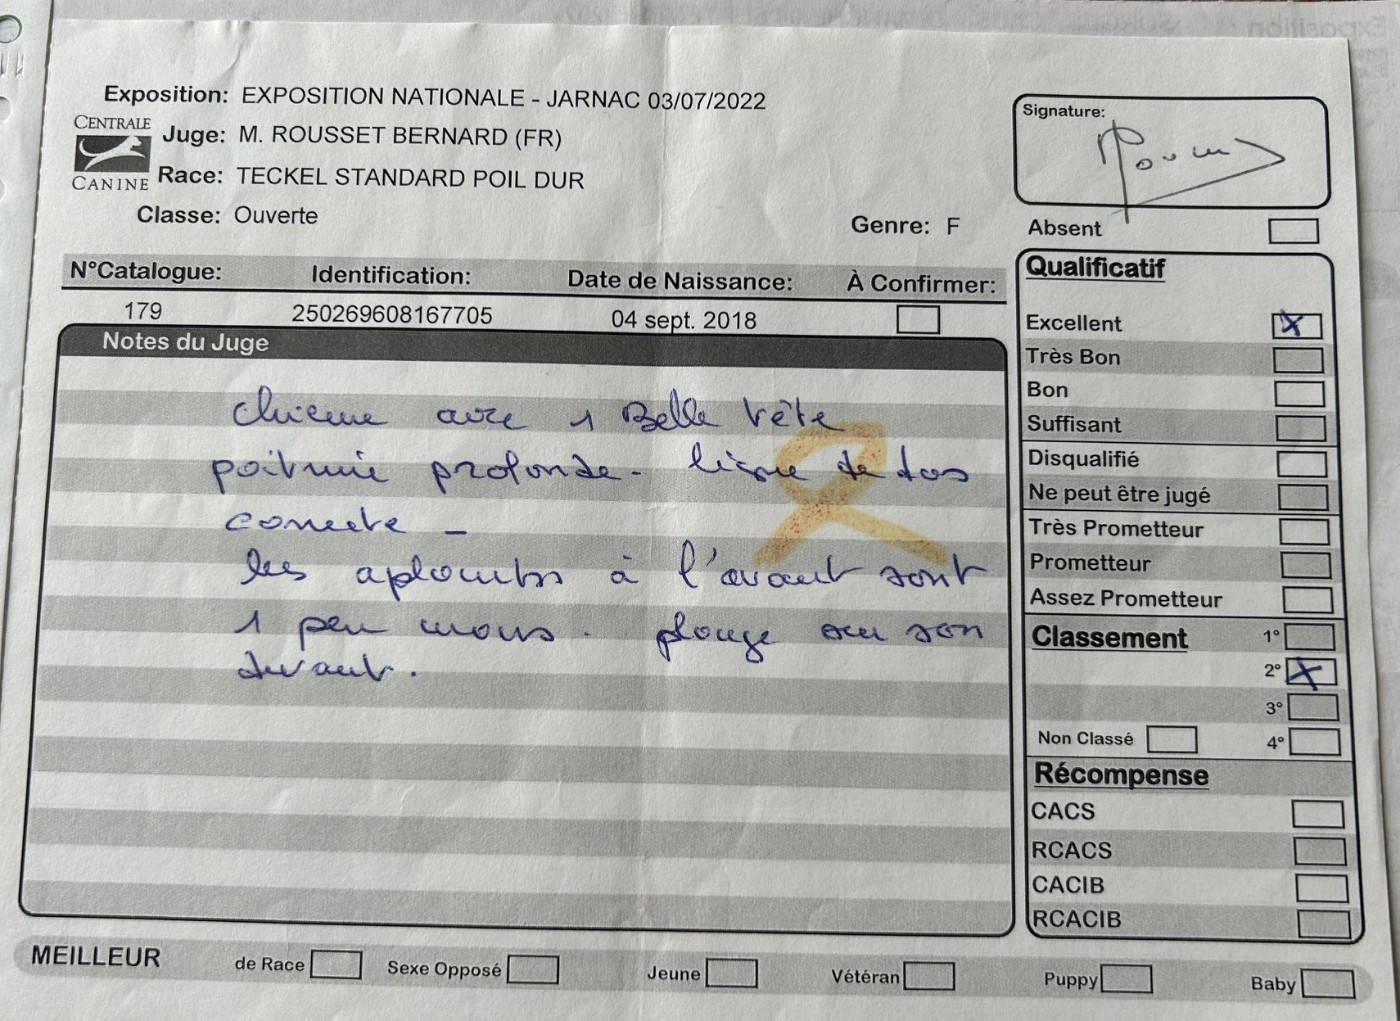 Exposition: EXPOSITION NATIONALE - JARNAC 03/07/2022
CENTRALE CANINE
Juge: M. ROUSSET BERNARD (FR)
Race: TECKEL STANDARD POIL DUR
Classe: Ouverte
Genre: F
Signature:
Absent
N°Catalogue: Identification: Date de Naissance: À Confirmer:
179 250269608167705 04 sept. 2018
Notes du Juge
Chienne avec 1 Belle tête
poitrine profonde - ligne de dos
correcte -
les aplombs à l'avant sont
1 peu mous. plonge sur son
devant.
Qualificatif
Excellent X
Très Bon
Bon
Suffisant
Disqualifié
Ne peut être jugé
Très Prometteur
Prometteur
Assez Prometteur
Classement 1°
2° X
3°
Non Classé 4°
Récompense
CACS
RCACS
CACIB
RCACIB
MEILLEUR de Race Sexe Opposé Jeune Vétéran Puppy Baby